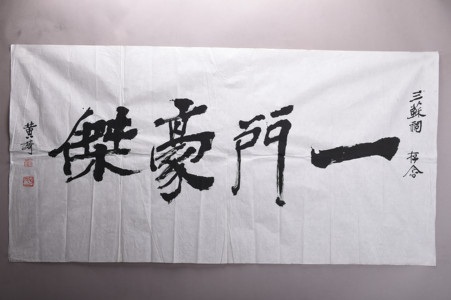 三蘇祠 存念
一門豪傑
黄琦